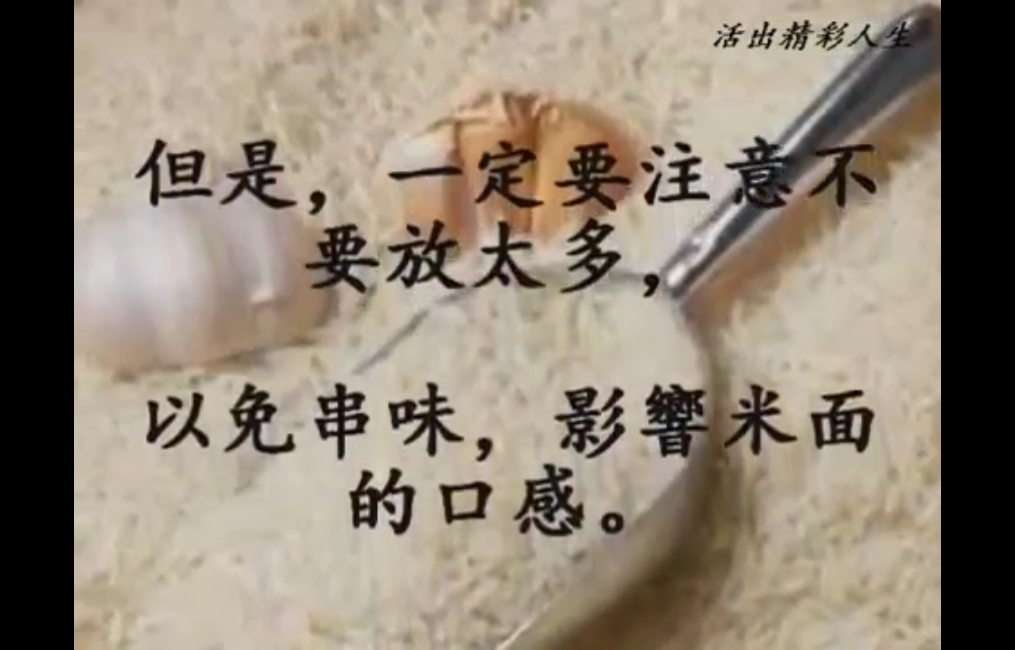 活出精彩人生
但是，一定要注意不
要放太多，
以免串味，影響米面
的口感。